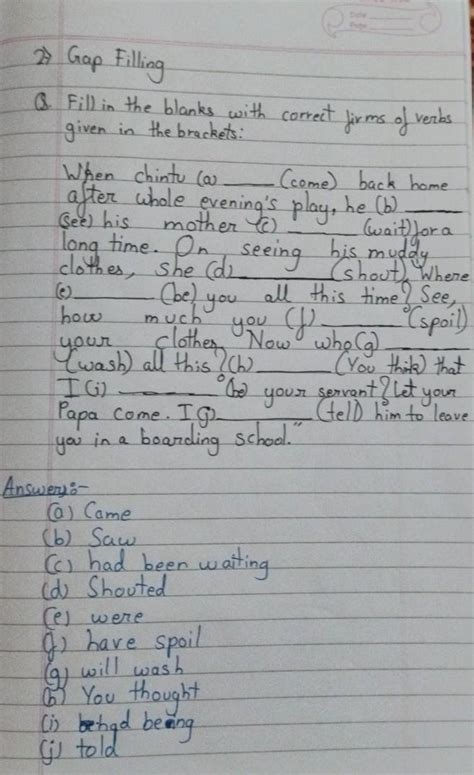 Date
2) Gap Filling
Q. Fill in the blanks with correct firms of verbs
given in the brackets:
When chintu (a) ____ (come) back home
after whole evening's play, he (b) ____
(see) his mother (c) ____ (wait) for a
long time. On seeing his muddy
clothes, she (d) ____ (shout), Where
(e) ____ (be) you all this time? See,
how much you (f) ____ (spoil)
your clothes. Now who (g) ____
(wash) all this? (h) ____ (You think) that
I (i) ____ (be) your servant? Let your
Papa come. I (j) ____ (tell) him to leave
you in a boarding school."
Answers:-
(a) Came
(b) Saw
(c) had been waiting
(d) Shouted
(e) were
(f) have spoil
(g) will wash
(h) You thought
(i) had being
(j) told